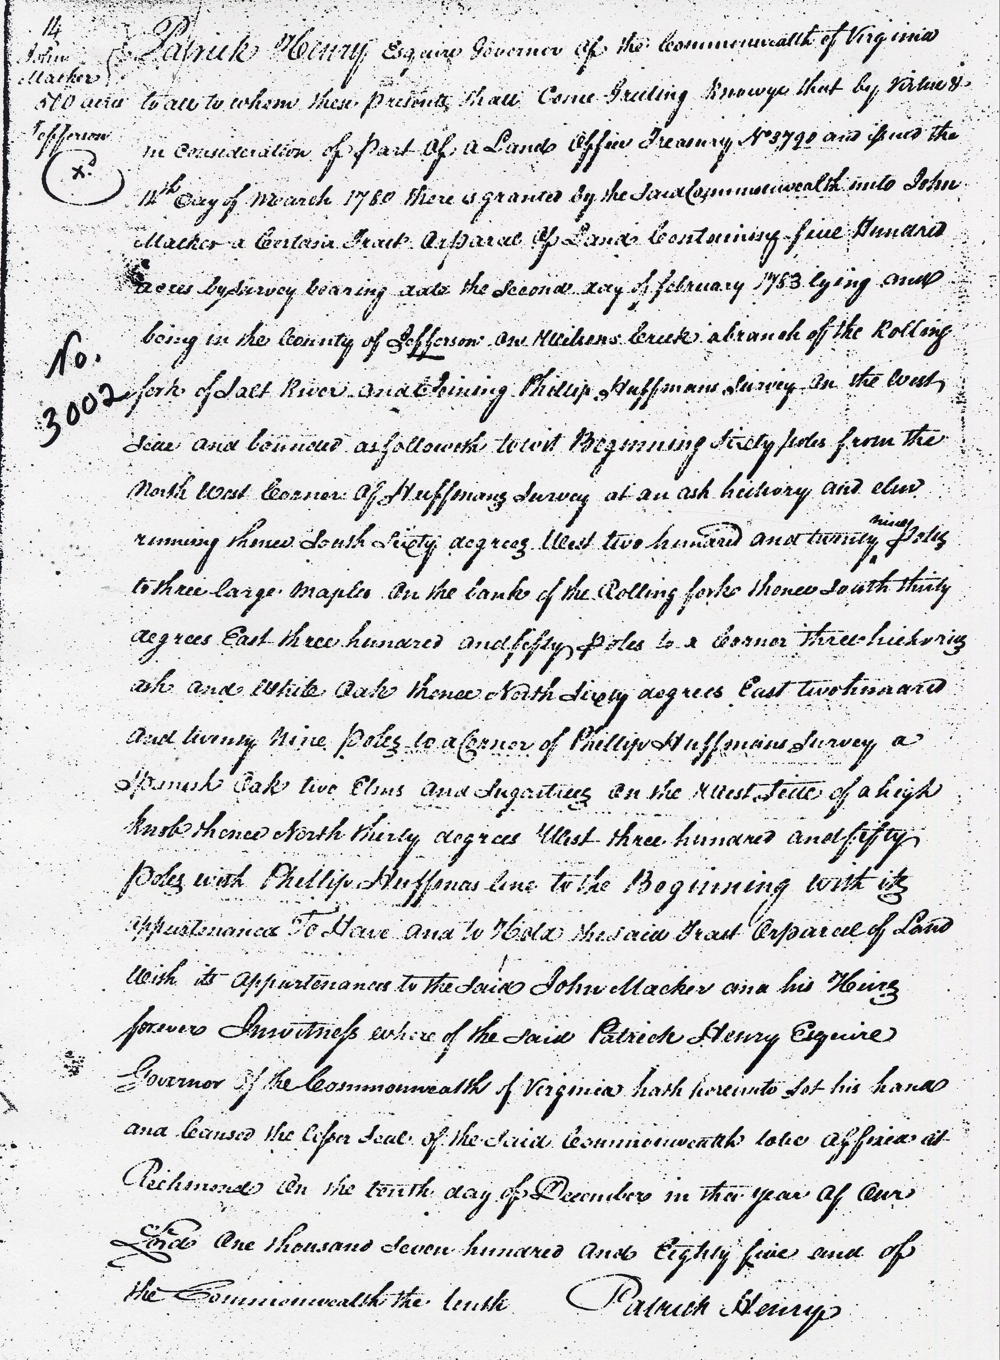 14
John
Macker
500 acres
Jefferson
X.
No.
3002
Patrick Henry Esquire Governor Of the Commonwealth of Virginia
to all to whom these presents shall Come Greeting Knowye that by Virtue &
in Consideration of Part Of a Land Office Treasury No 3790 and issued the
14th Day of March 1780 there is granted by the Said Commonwealth unto John
Macker a Certain Tract Orparcel Of Land Containing five Hundred
acres by Survey bearing date the Second day of february 1783 lying and
being in the County of Jefferson On Wilsons Creek abranch of the Rolling
fork of Salt River and Joining Phillip Huffmans Survey On the West
Side and bounded asfolloweth towit Beginning Sixty poles from the
North West Corner Of Huffmans Survey at an ash hickory and elm
running thence South Sixty degrees West two hundred and twenty nine Poles
to three large Maples On the bank of the Rolling fork thence South thirty
degrees East three hundred and fifty Poles to a Corner three hickories
ash and White Oak thence North Sixty degrees East two hundred
and twenty Nine Poles to a Corner of Phillip Huffmans Survey a
Spanish Oak two Elms and Sugartrees On the West Side of a high
knob thence North thirty degrees West three hundred and fifty
Poles with Phillip Huffmas line to the Beginning with its
appurtenance To Have and to Hold the said Tract Orparcel of Land
With its appurtenances to the Said John Macker and his Heirs
forever Inwitness where of the said Patrick Henry Esquire
Governor Of the Commonwealth of Virginia hath hereunto Set his hand
and Caused the lesser Seal of the Said Commonwealth tobe affixed at
Richmond On the tenth day of December in the year Of Our
Lord One thousand Seven hundred and Eighty five and of
the Commonwealth the tenth Patrick Henry